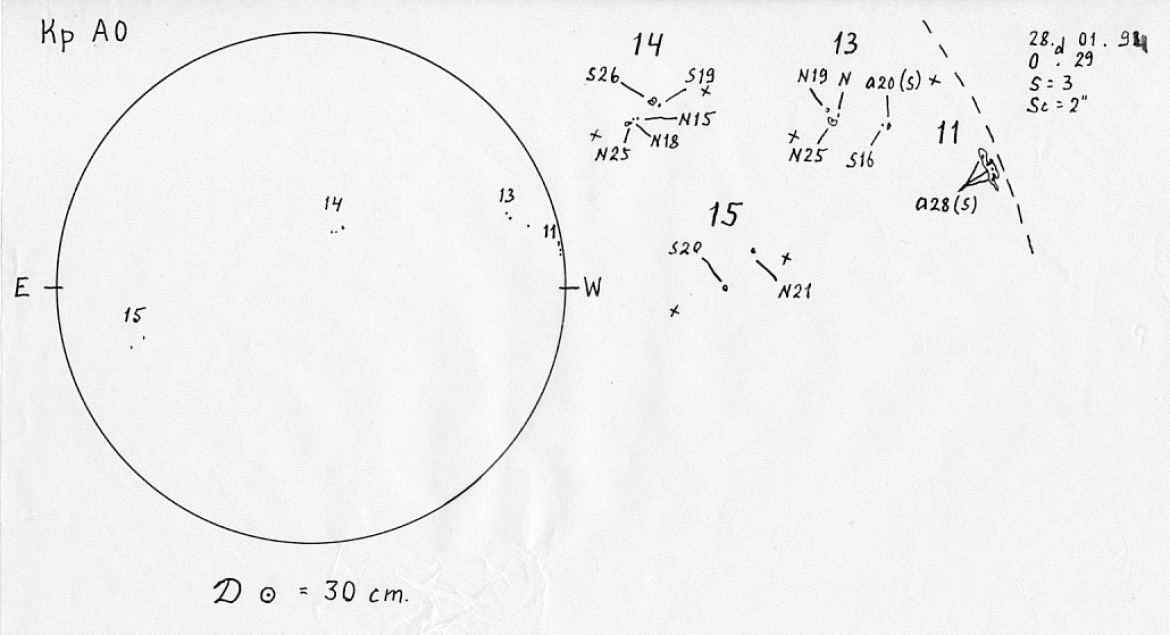 Кр АО
14
S26 S19
N15
N25 N18
13
N19 N a20(S)
N25 S16
11
a28(S)
28.d 01.
0 . 29
S = 3
Sc = 2"
14
13
11
E
W
15
15
S20
N21
D ⊙ = 30 cm.